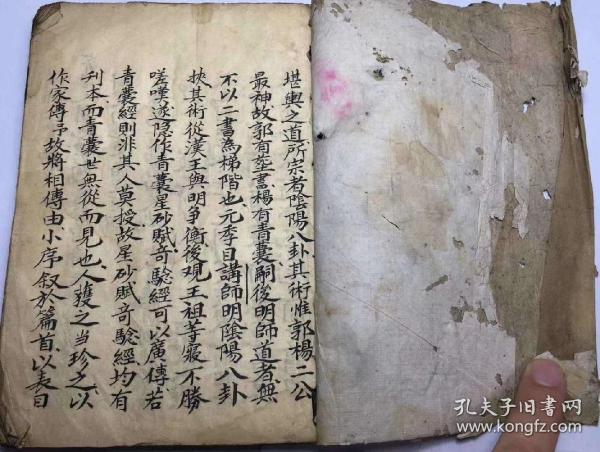 堪輿之道所宗者陰陽八卦其術惟郭楊二公
最神故郭有塟書楊有青囊嗣後明師道者無
不以二書為梯階也元季目講師明陰陽八卦
挾其術從漢王與明爭衡後观王祖等寢不勝
嗟嘆遂隐作青囊星砂賦竒騐經可以廣傳若
青囊經則非其人莫授故星砂賦竒騐經均有
刋本而青囊世無從而見也人獲之当珍之以
作家傳予故將相傳由小序叙於篇首以表曰
孔夫子旧書网
kongfz.com